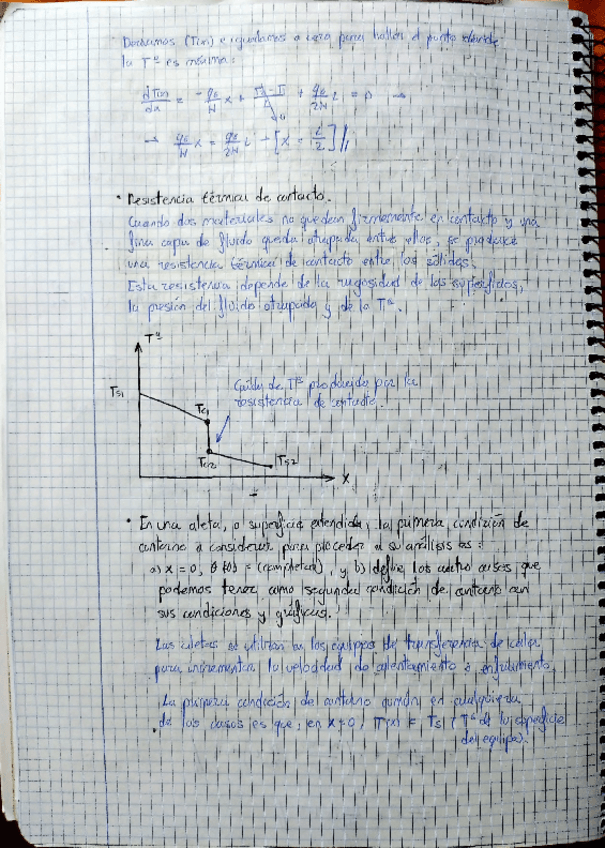 Derivamos (T(x)) e igualamos a cero para hallar el punto donde
la Tª es máxima:
dT(x)/dx = -q̇G/K x + T2-T1/L + q̇G/2K L = 0 →
0
→ q̇G/K x = q̇G/2K L → [x = L/2]//
• Resistencia térmica de contacto.
Cuando dos materiales no quedan firmemente en contacto y una
fina capa de fluido queda atrapada entre ellos, se produce
una resistencia térmica de contacto entre los sólidos.
Esta resistencia depende de la rugosidad de las superficies,
la presión del fluido atrapado y de la Tª.
Tª
Ts1
Caída de Tª producida por la
resistencia de contacto.
Tc1
Tc2
Ts2
x
• En una aleta, o superficie extendida, la primera condición de
contorno a considerar para proceder a su análisis es:
a) x = 0, θ(0) = (completar), y b) define los cuatro casos que
podemos tener como segunda condición de contorno con
sus condiciones y gráficas.
Las aletas se utilizan en los equipos de transferencia de calor
para incrementar la velocidad de calentamiento o enfriamiento.
La primera condición de contorno común en cualquiera
de los casos es que, en x=0, T(x) = Ts1 (Tª de la superficie
del equipo).